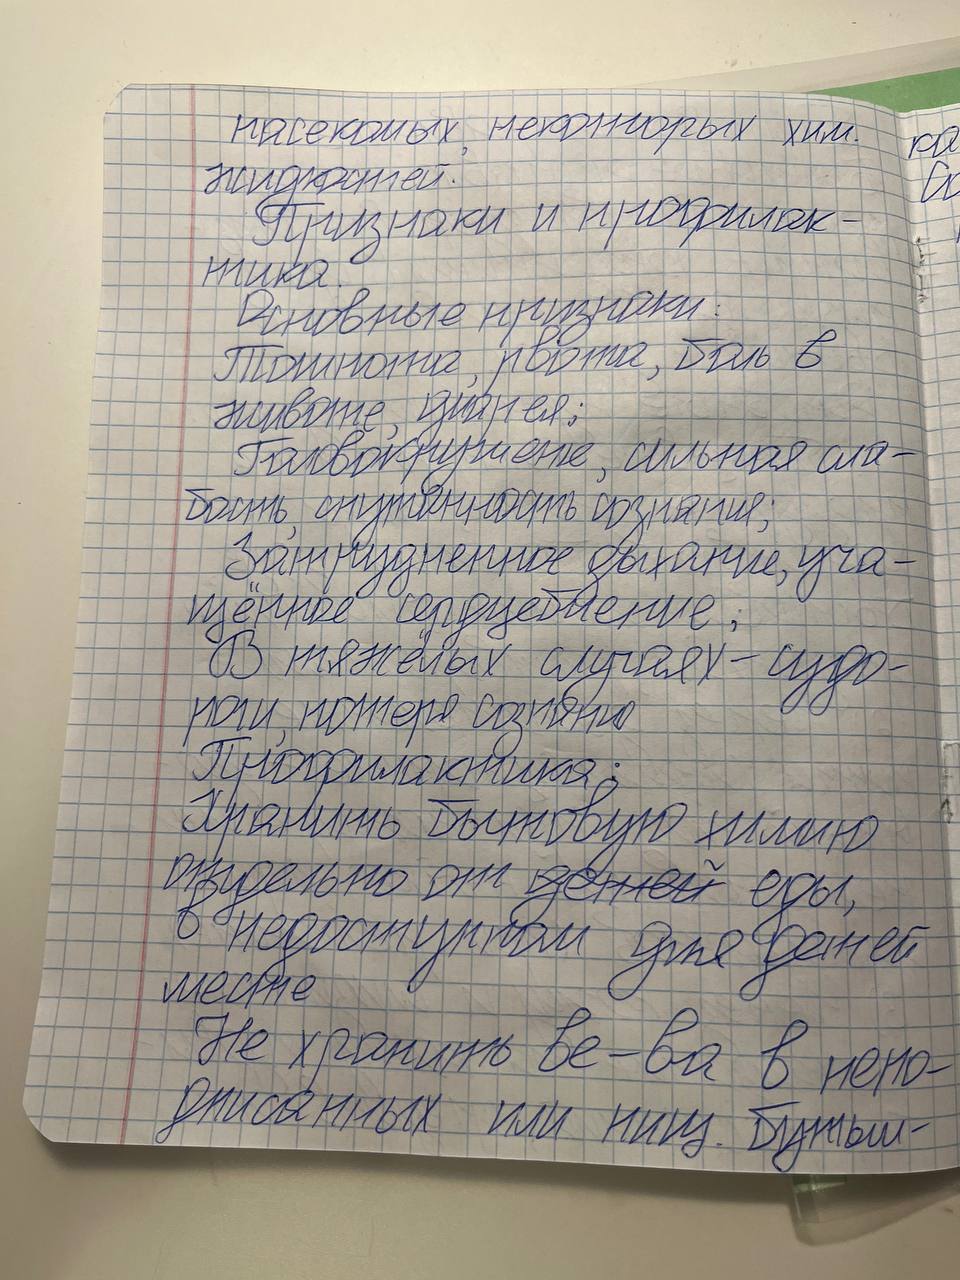 насекомых, некоторых хим.
жидкостей.
Признаки и профилак-
тика.
Основные признаки:
Тошнота, рвота, боль в
животе, диарея;
Головокружение, сильная сла-
бость, спутанность сознания;
Затрудненное дыхание, уча-
щённое сердцебиение;
В тяжёлых случаях – судо-
роги, потеря сознания
Профилактика:
Хранить бытовую химию
отдельно от детей еды,
в недоступном для детей
месте
Не хранить ве-ва в непо-
дписанных или пищ. бутыл-
ка